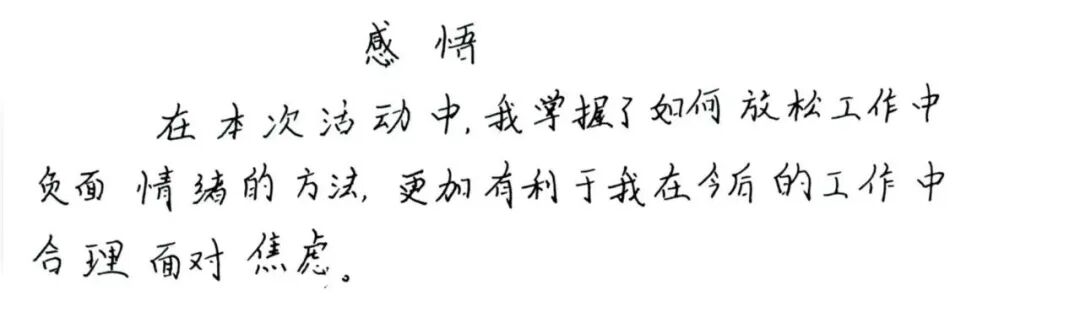 感悟
在本次活动中,我掌握了如何放松工作中
负面情绪的方法,更加有利于我在今后的工作中
合理面对焦虑。